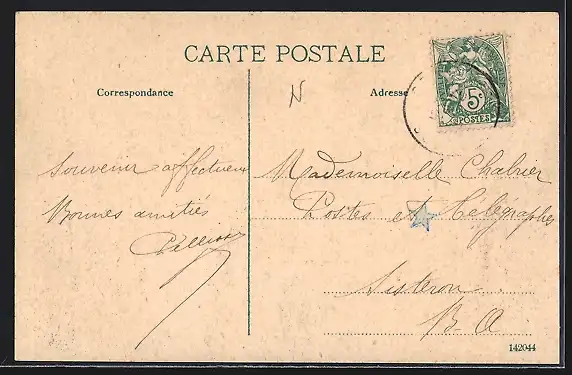 CARTE POSTALE
Correspondance
Adresse
N
5c
POSTES
Souvenir affectueux
Bonnes amitiés
Mademoiselle Chabrier
Postes et Télégraphes
Sisteron
B A
142044